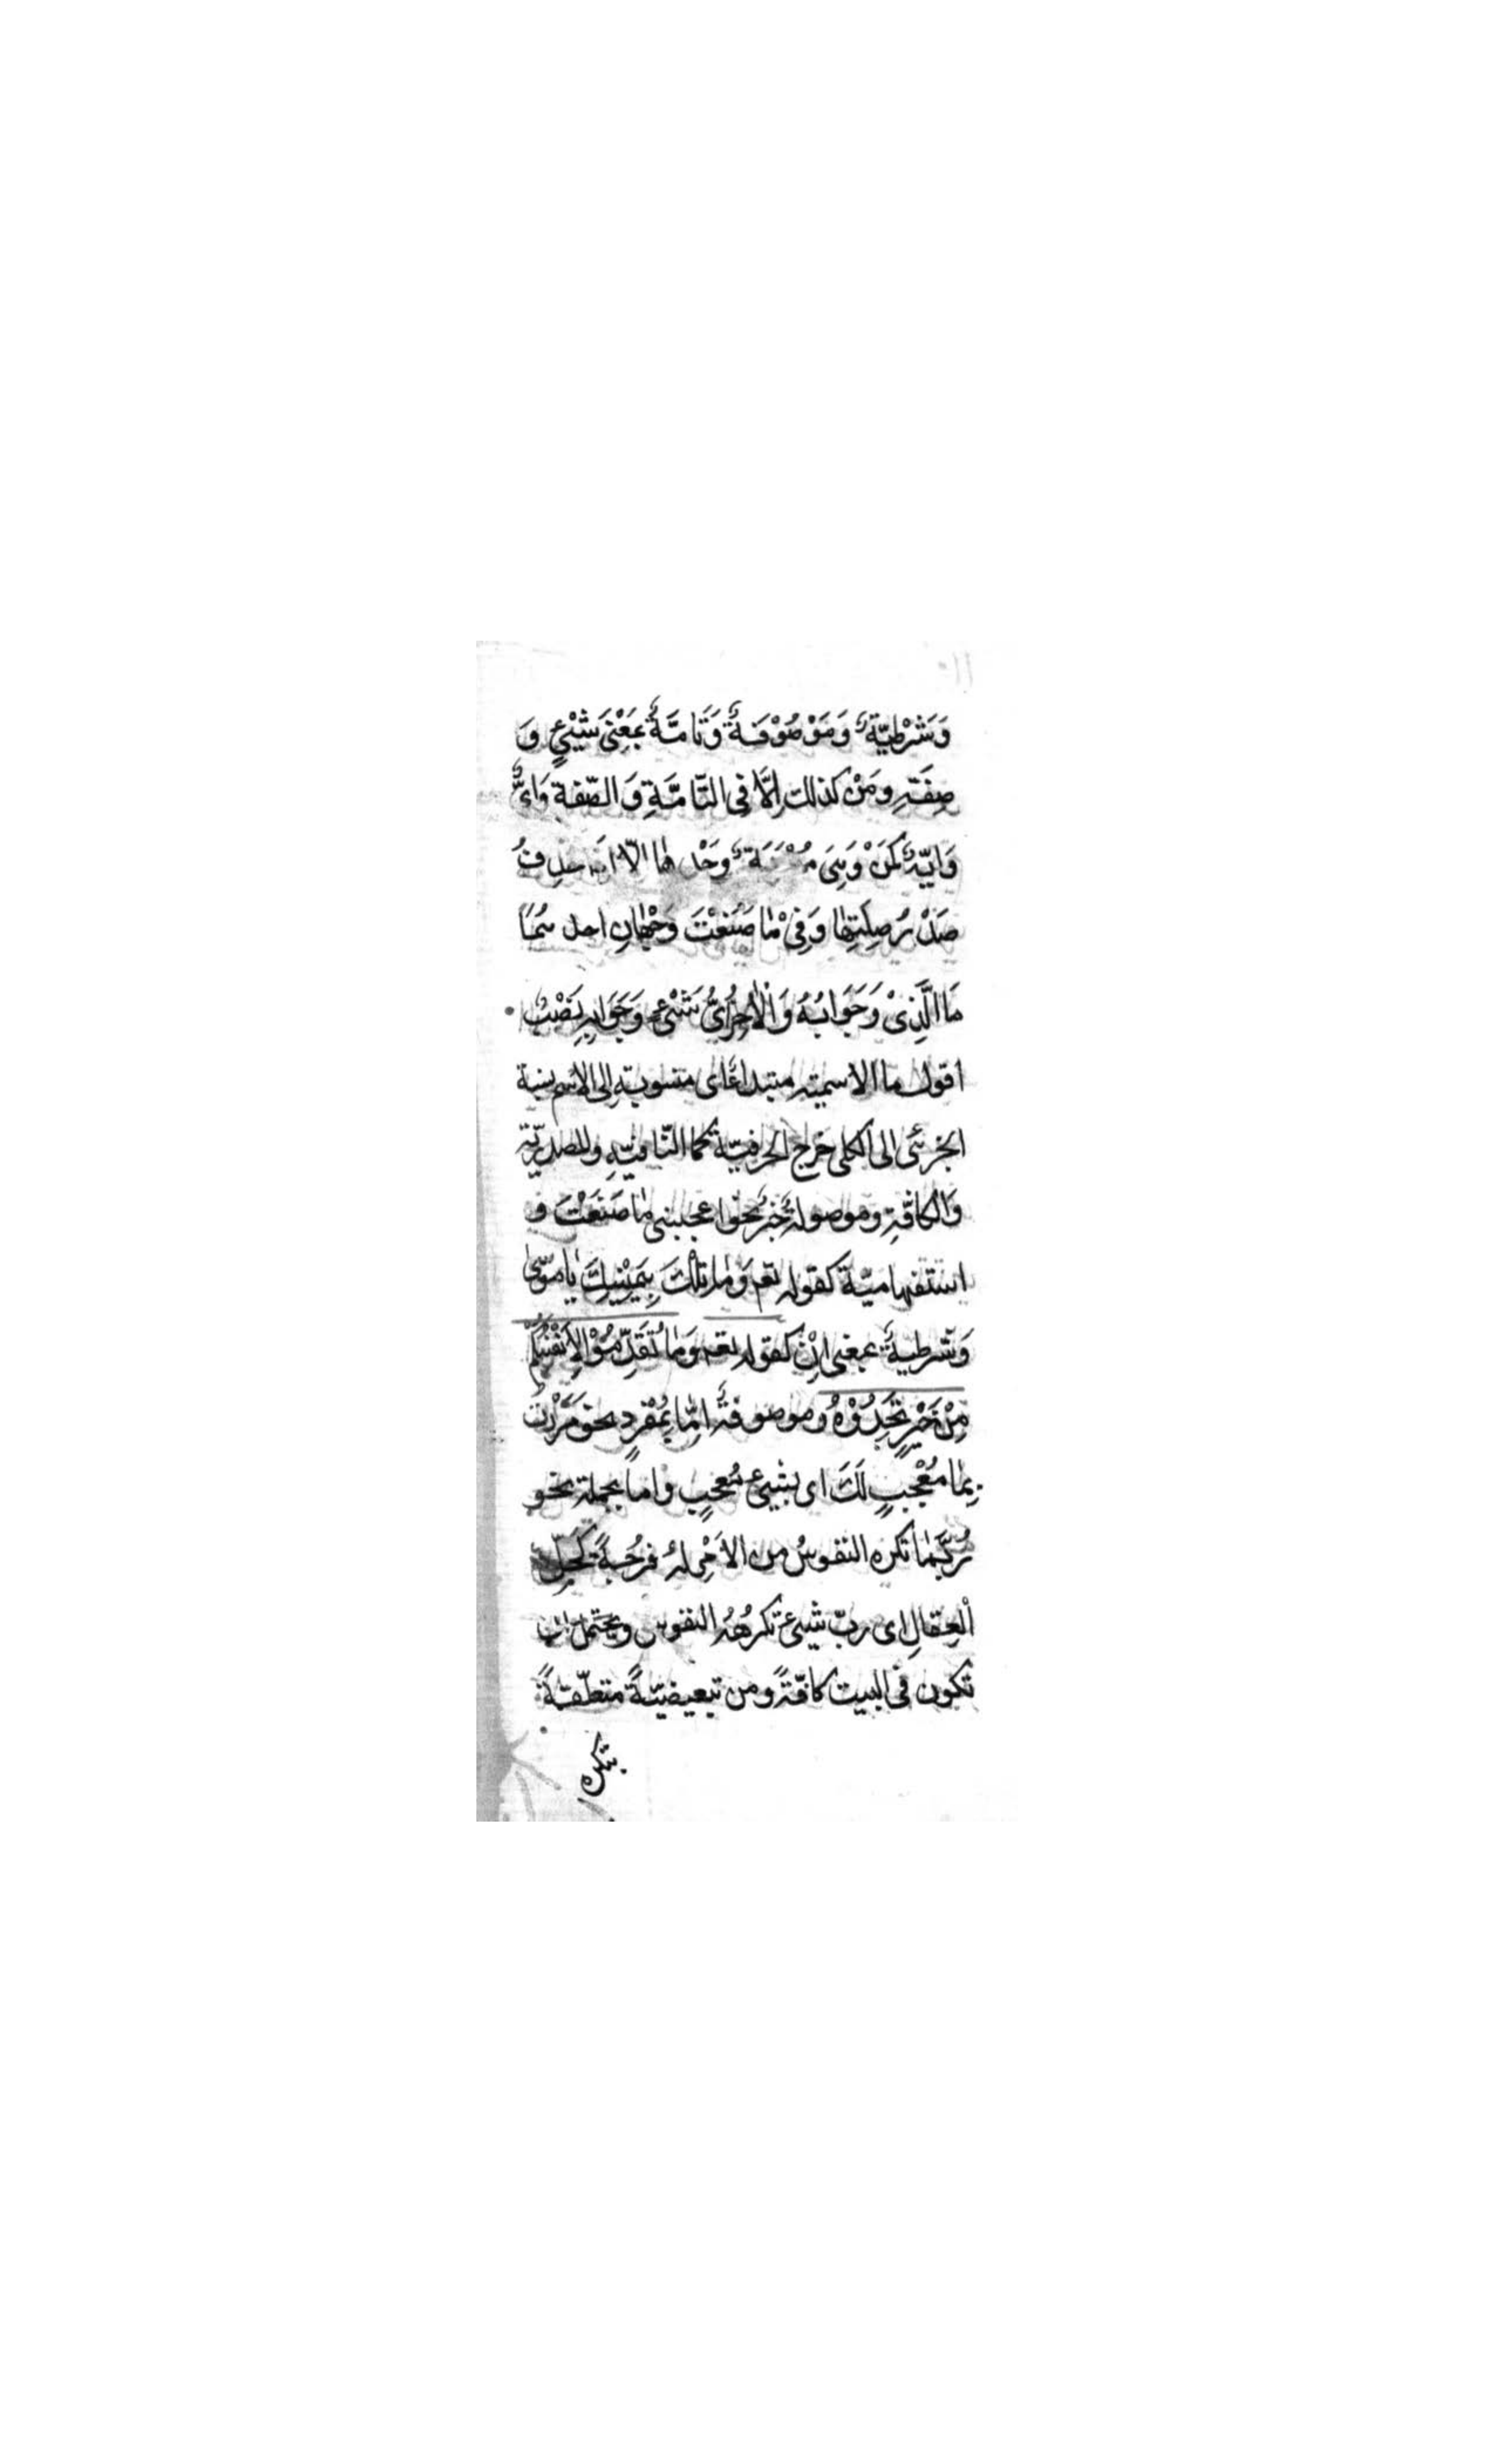 ١١٠
وَشَرْطِيَّةٌ وَمَوْصُوْفَةٌ وَتَامَّةٌ بِمَعْنٰى شَيْءٍ وَ
صِفَةٍ ومَنْ كذلك اِلَّا فى التّامَّةِ وَالصّفة وَاَىٌّ
وَاَيّةٌ كَمَنْ وَهِىَ وَحْدها الّا
صَدْرُ صِلَتِهٰا وَفِىْ مٰا صَنَعْتَ وَجْهٰانِ احدهُمَا
مَا الَّذِىْ وَجَوَابُهُ وَالْاٰخِرُ اَىُّ شَىْءٍ وَجَوَابه نَصْبٌ
اقول ما الاسمية مبتداء اى منسوبة الى الاسم نسبة
الجزئى الى الكلى خرج الحرفيّة كما النّافيّةِ والمصدريّة
وَالكافّةِ وموصولة خبر نحو اعجبنى مٰا صَنَعْتَ و
استفهاميّة كقوله تعم وَمٰا تلْكَ بِيَمِيْنِكَ يٰا مُوْسٰى
وَشرطيةٌ بمعنى اِنْ كقوله تعم وَمٰا تُقَدِّمُوْا لِاَنْفُسِكُمْ
مِنْ خَيْرٍ تَجِدُوْهُ وموصوفةٌ امّا بِمُفْرَدٍ نحو مَرَرْتُ
بِمٰا مُعْجِبٍ لَكَ اى بشيءٍ مُعْجِبٍ وامّا بجملة نحو
رُبَّمٰا تكره النفوسُ من الاَمْرِ لهُ فرْجَةٌ كَحَلِّ
الْعِقالِ اى ربّ شيءٍ تكرهُهُ النفوس ويحتمل ان
تكون فى البيت كافّةً ومن تبعيضيّةً متعلّقةً
بتكره